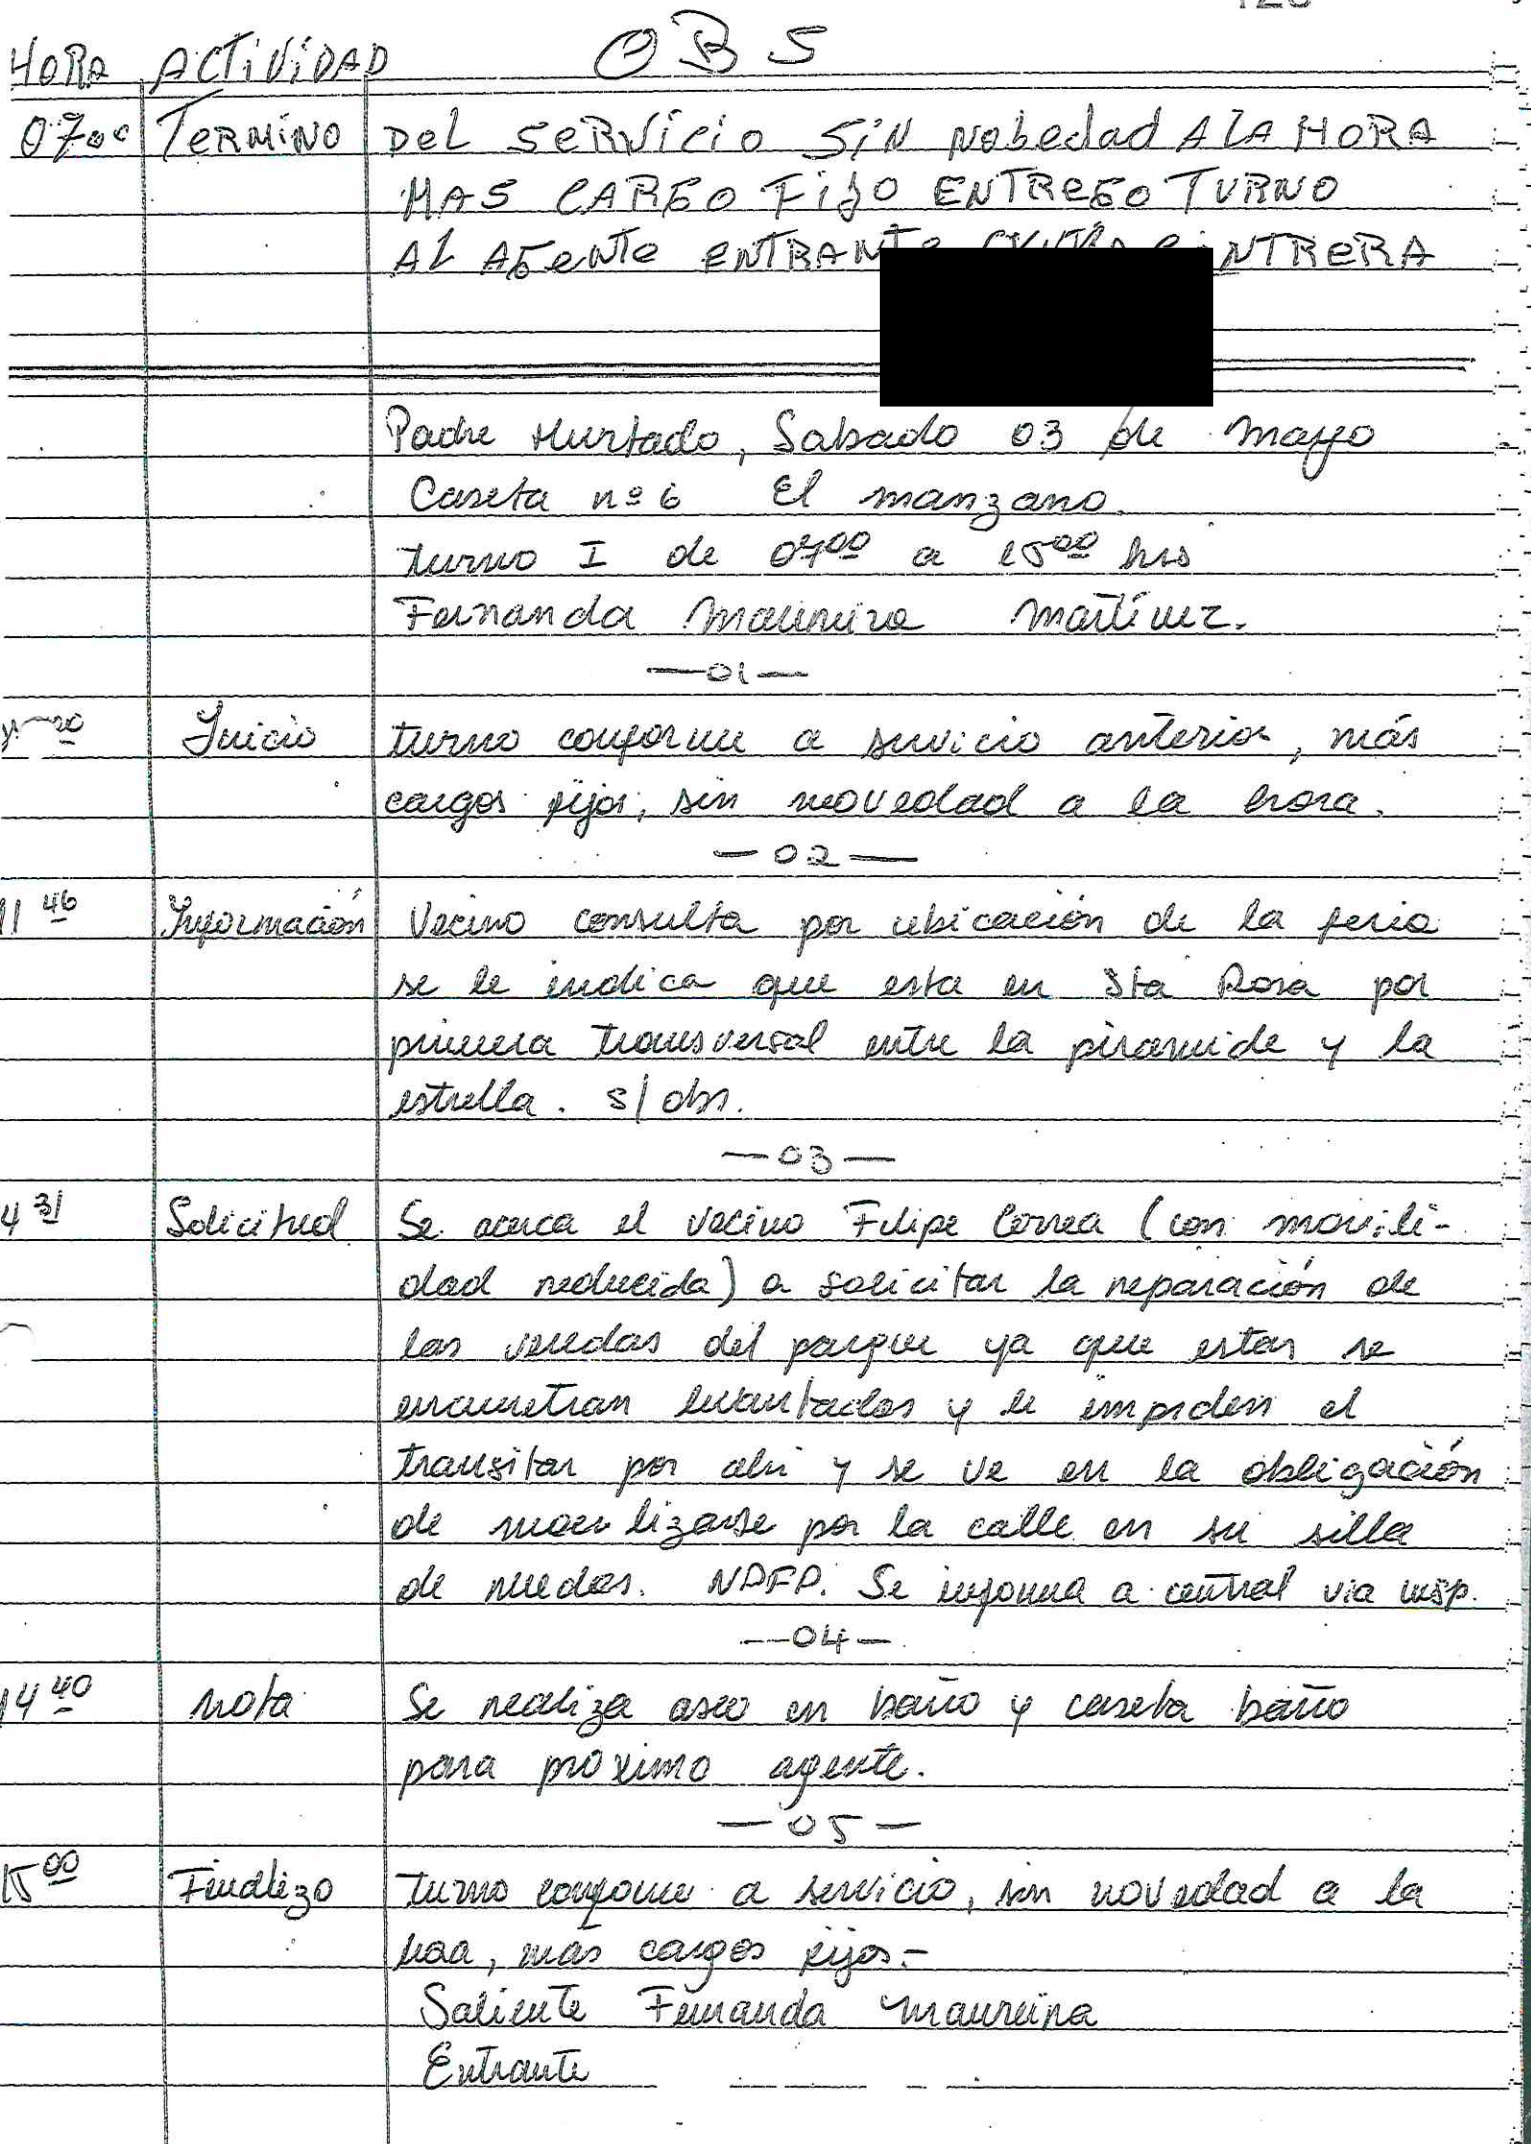 HORA ACTIVIDAD OBS
0700 TERMINO DEL SERVICIO SIN Nobedad A LA HORA
MAS CARGO FIJO ENTREGO TURNO
AL AGENTE ENTRANTE NTRERA
Padre Hurtado, Sabado 03 de Mayo
Caseta nº 6 El manzano.
turno I de 0700 a 1500 hrs
Fernanda Martínez.
—01—
Inicio turno conforme a servicio anterior, más
cargos fijos, sin novedad a la hora.
—02—
11 46 Información Vecino consulta por ubicación de la feria
se le indica que esta en Sta Rosa por
primera transversal entre la piramide y la
estrella. s/obs.
—03—
4 31 Solicitud Se acerca el vecino Felipe Correa (con movili-
dad reducida) a solicitar la reparación de
las veredas del parque ya que estas se
encuentran levantadas y le impiden el
transitar por ahi y se ve en la obligación
de movilizarse por la calle en su silla
de ruedas. Se informa a central via wsp.
—04—
14 40 Nota Se realiza aseo en baño y caseta baño
para proximo agente.
—05—
15 00 Finalizo turno conforme a servicio, sin novedad a la
hora, mas cargos fijos.-
Saliente Fernanda Maureira
Entrante